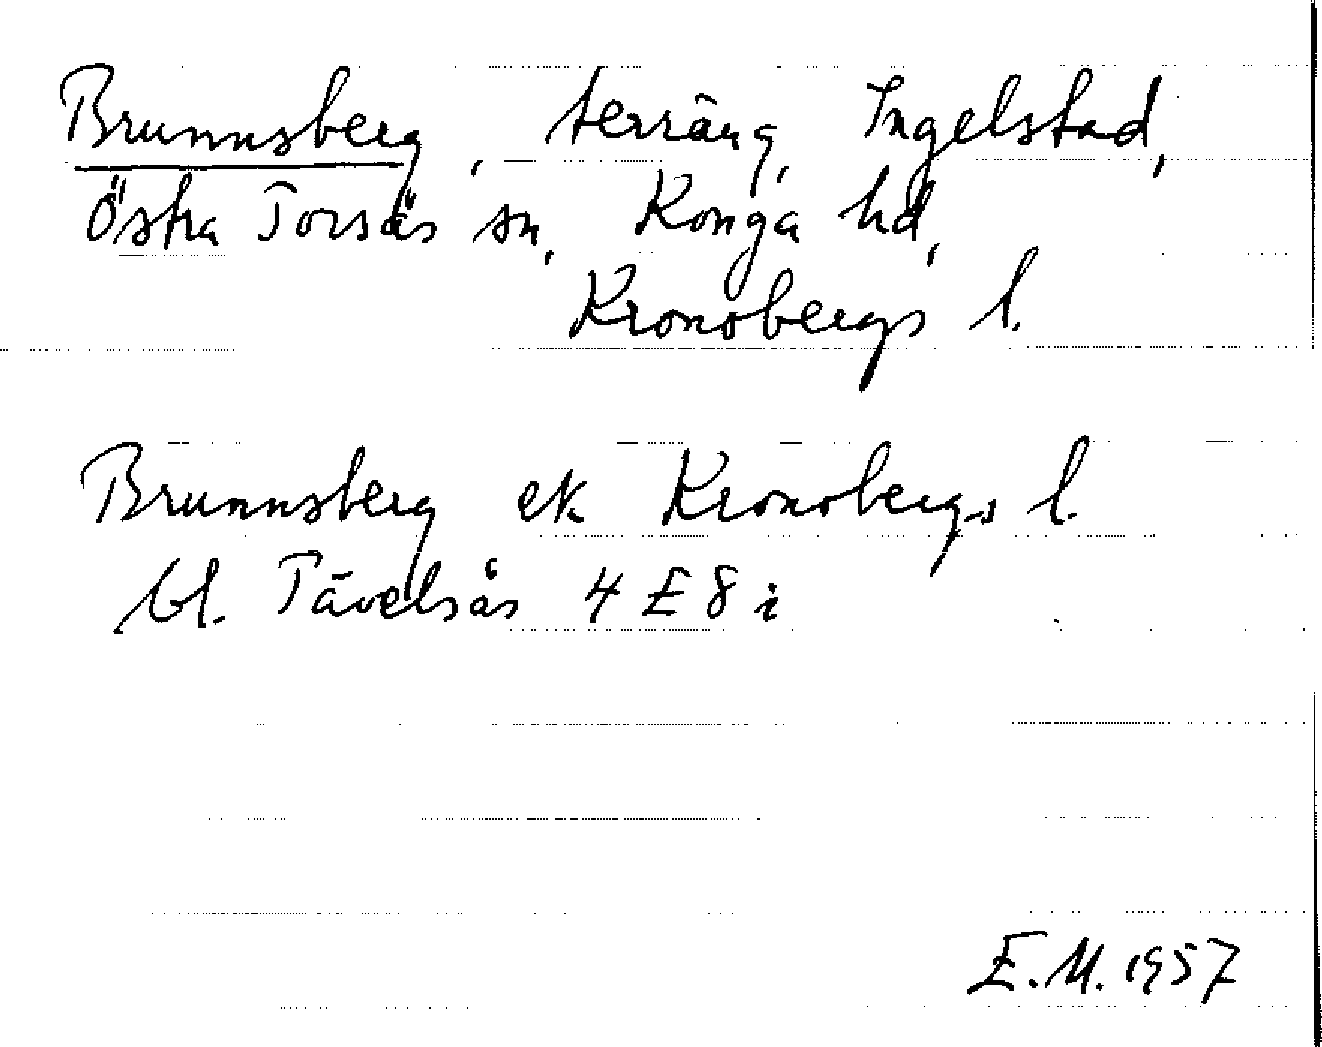 Brunnsberg, terräng, Ingelstad,
Östra Torsås sn, Konga hd,
Kronobergs l.
Brunnsberg ek Kronobergs l.
bl. Tävelsås 4 E 8 i
E.M. 1957